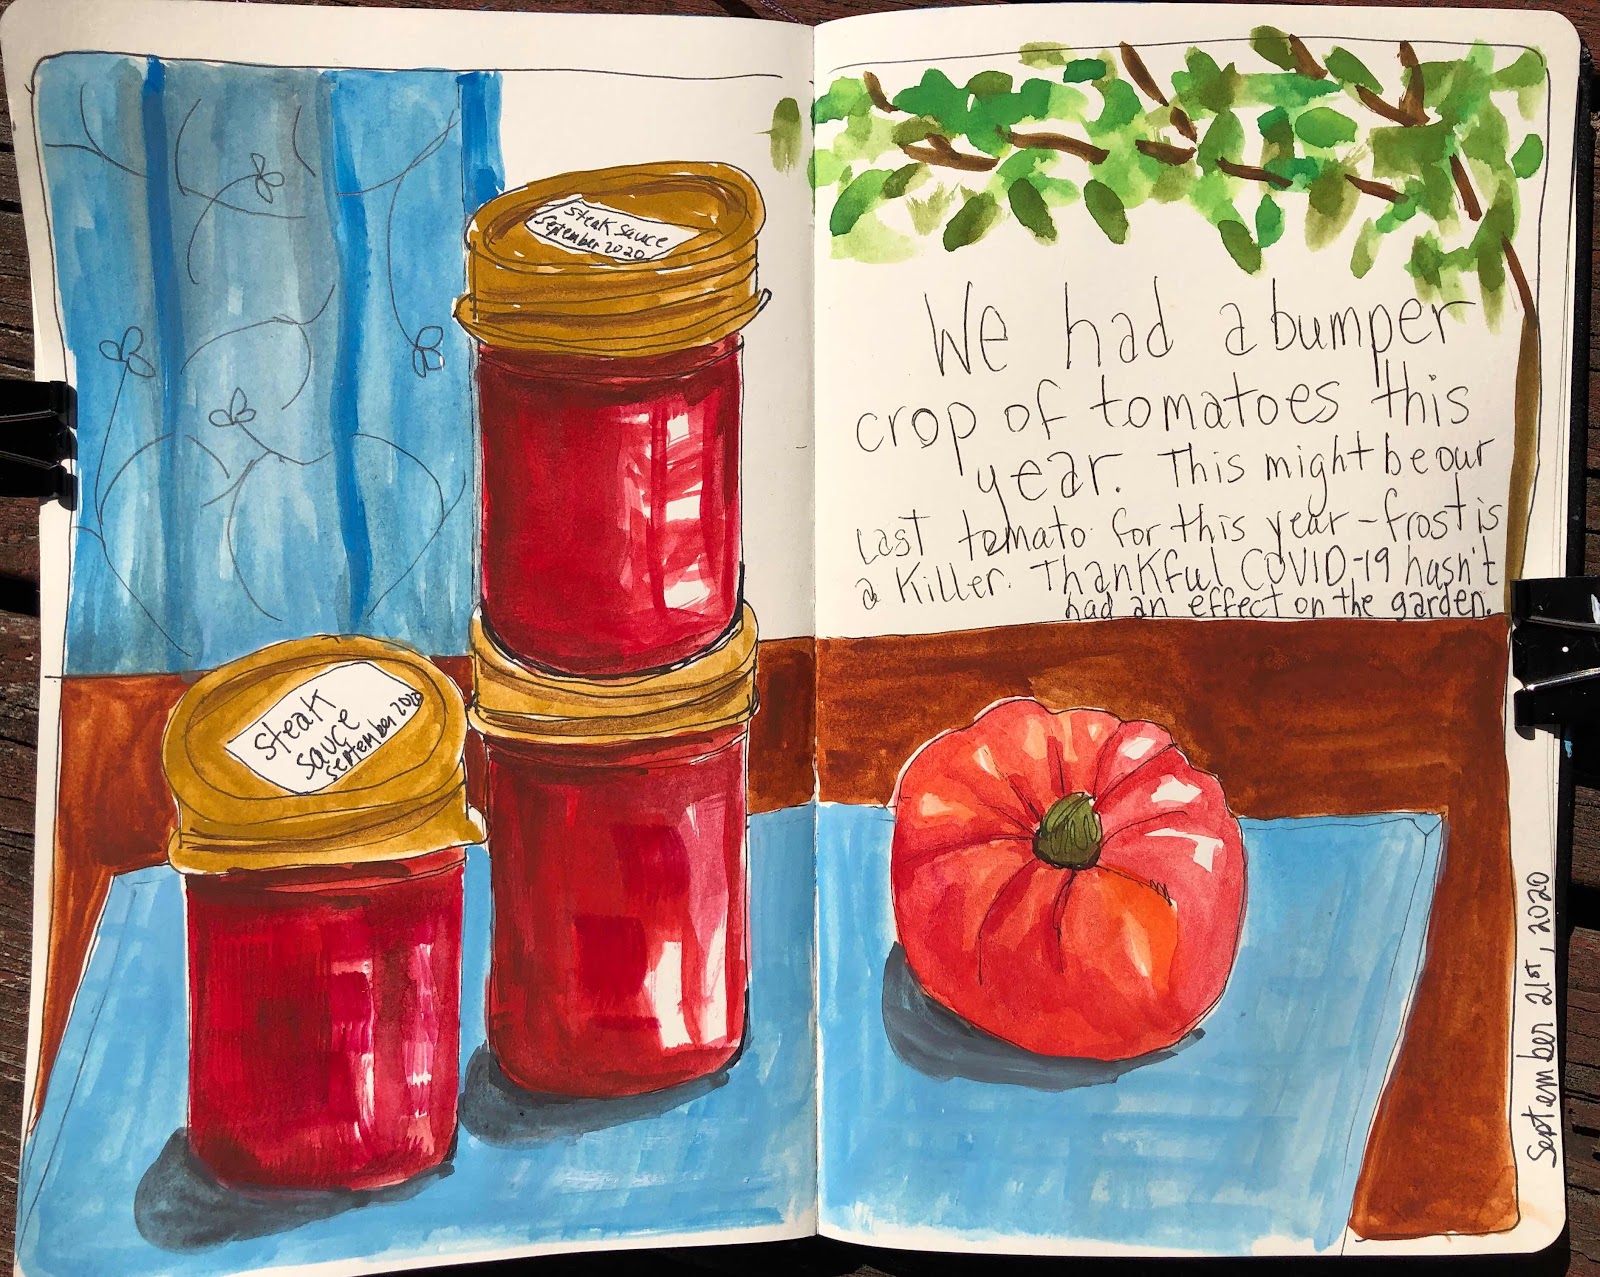 Steak sauce
September 2020
Steak
sauce
September 2020
We had a bumper
crop of tomatoes this
year. This might be our
Last tomato for this year - frost is
a killer. Thankful COVID-19 hasn't
had an effect on the garden.
September 21st, 2020